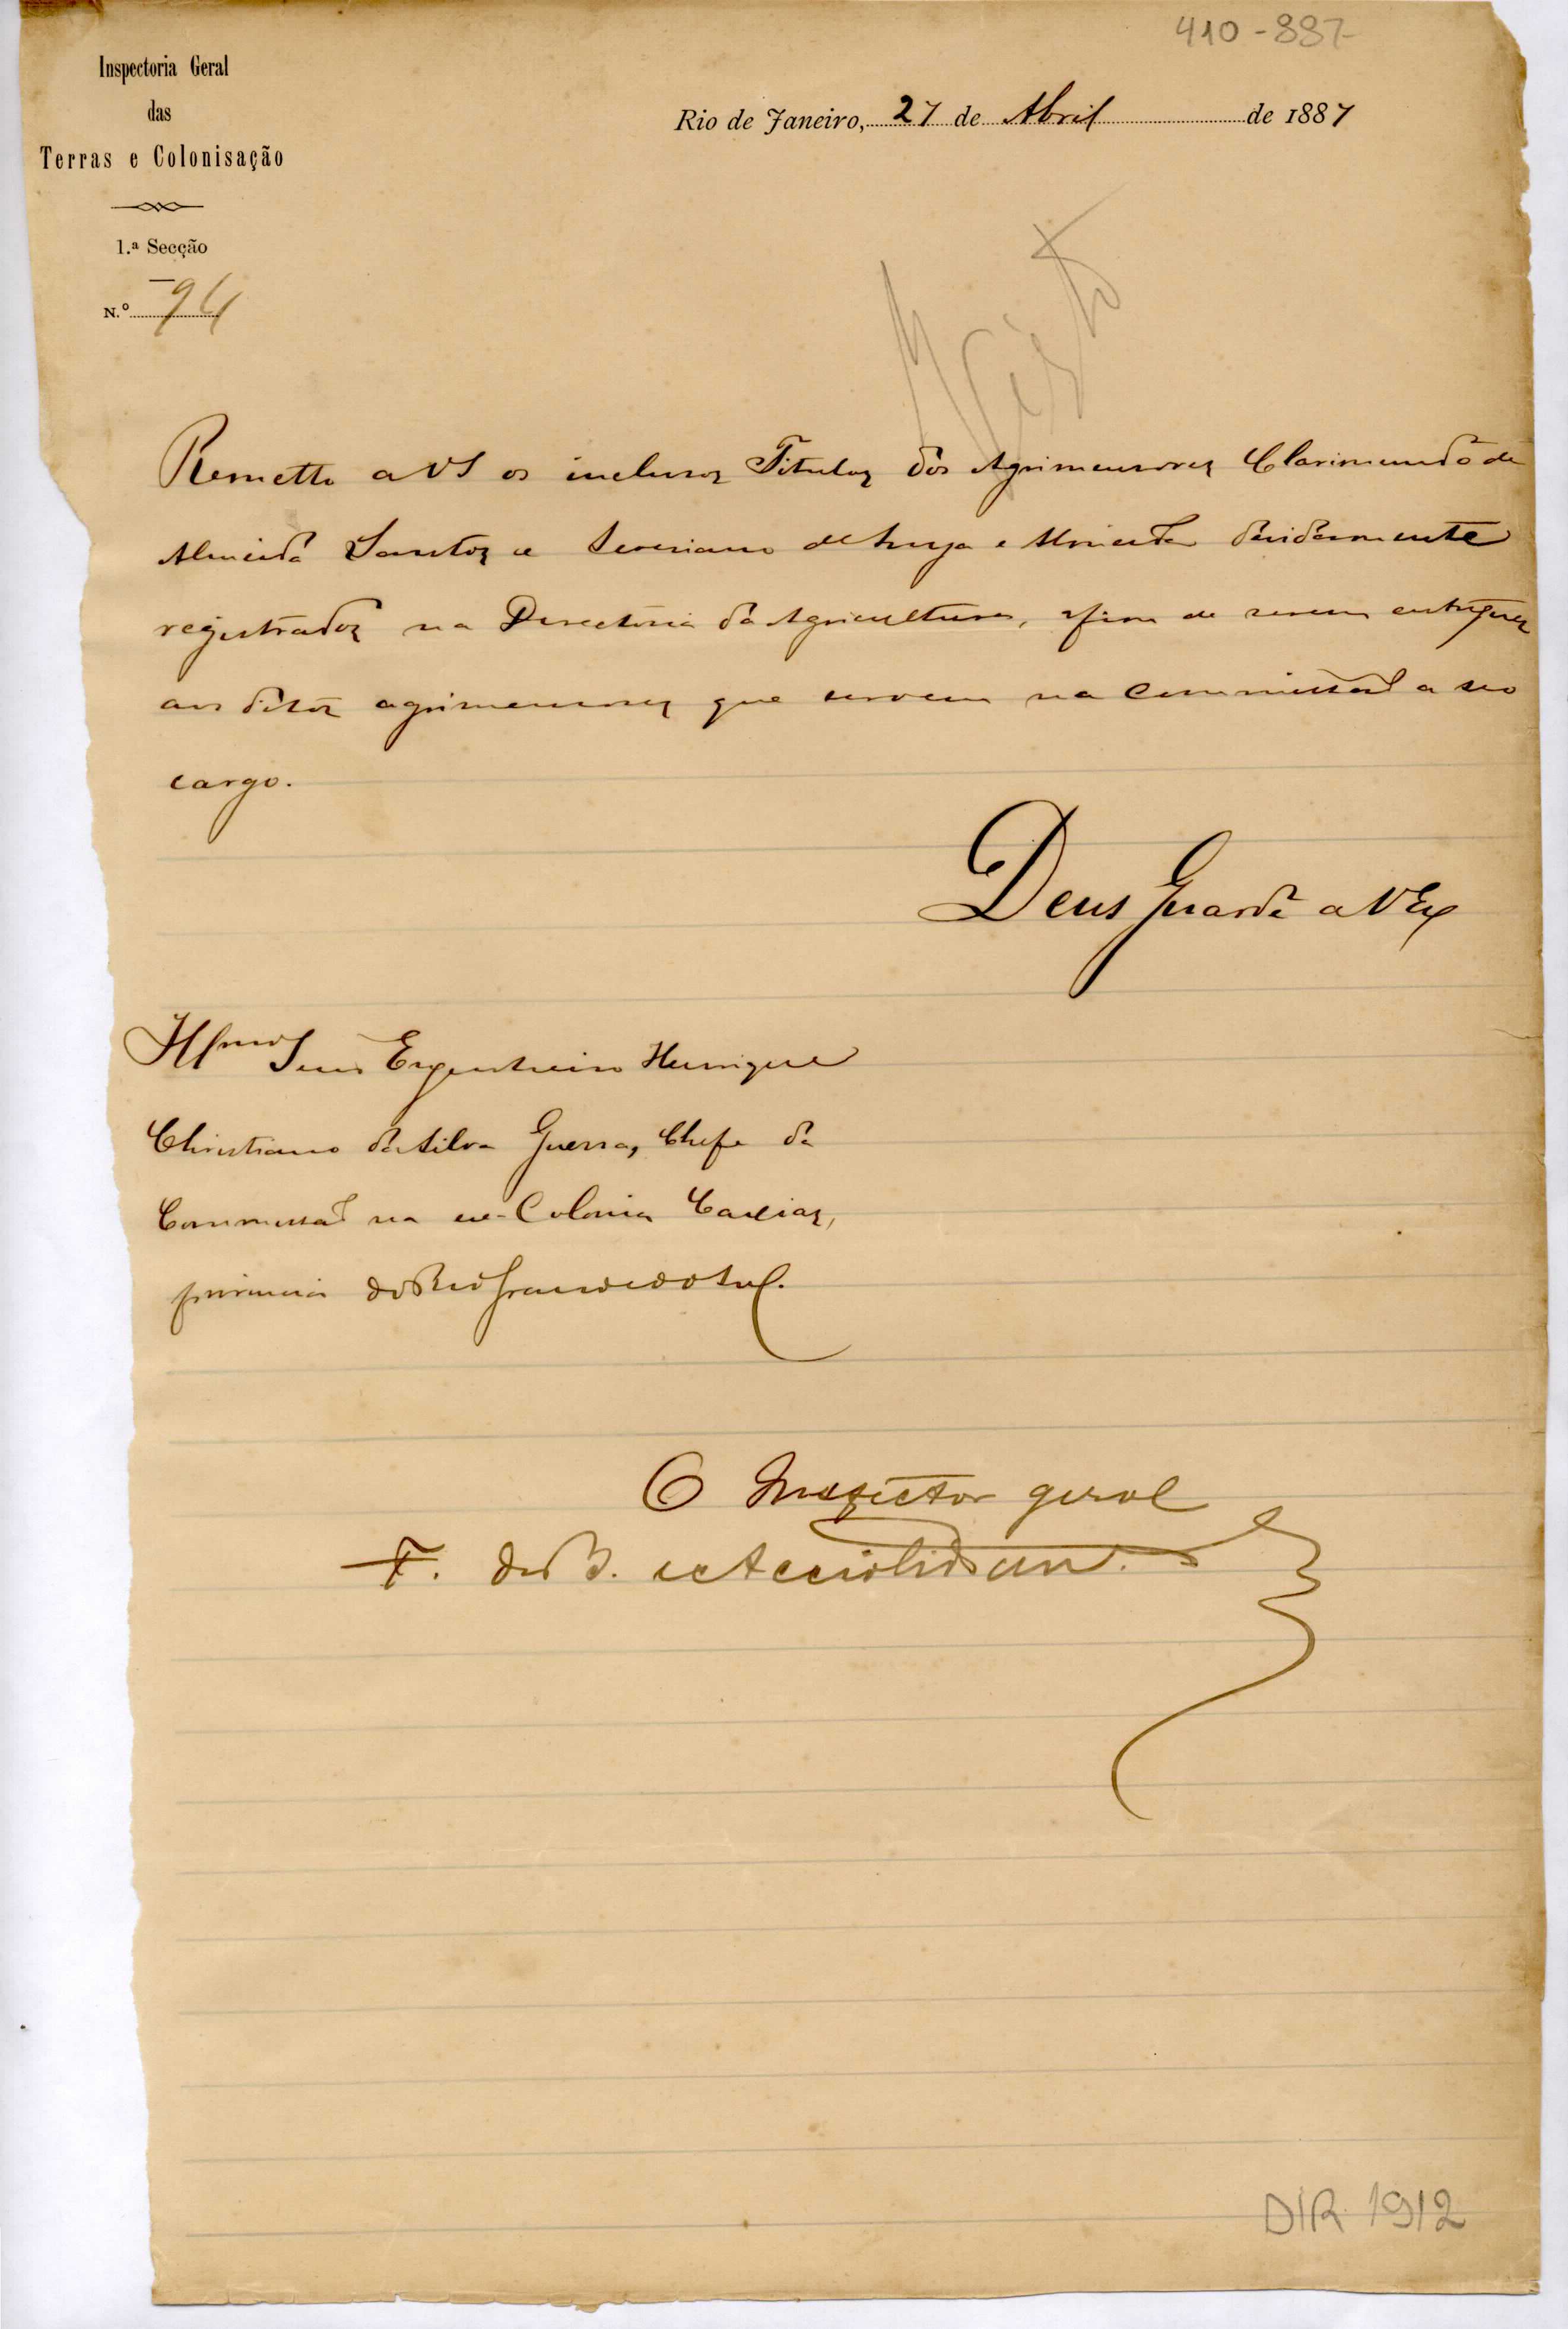 410-887
Inspectoria Geral
das
Terras e Colonisação
1.ª Secção
N.º 94
Rio de Janeiro, 27 de Abril de 1887
Visto
Remetto a VS os inclusos Titulos dos Agrimensores Clarimundo de
Almeida Santos e Severiano de Almeida devidamente
registrados na Directoria da Agricultura, afim de serem entregues
aos ditos agrimensores que servem na Commissão a seo
cargo.
Deus Guarde a V Ex
Illmo Senr Engenheiro Henrique
Christiano da Silva Guerra, Chefe da
Commissão na ex-Colonia Caxias,
provincia do Rio Grande do Sul.
O Inspector geral
F. de B. e Accioli de
DIR 1912